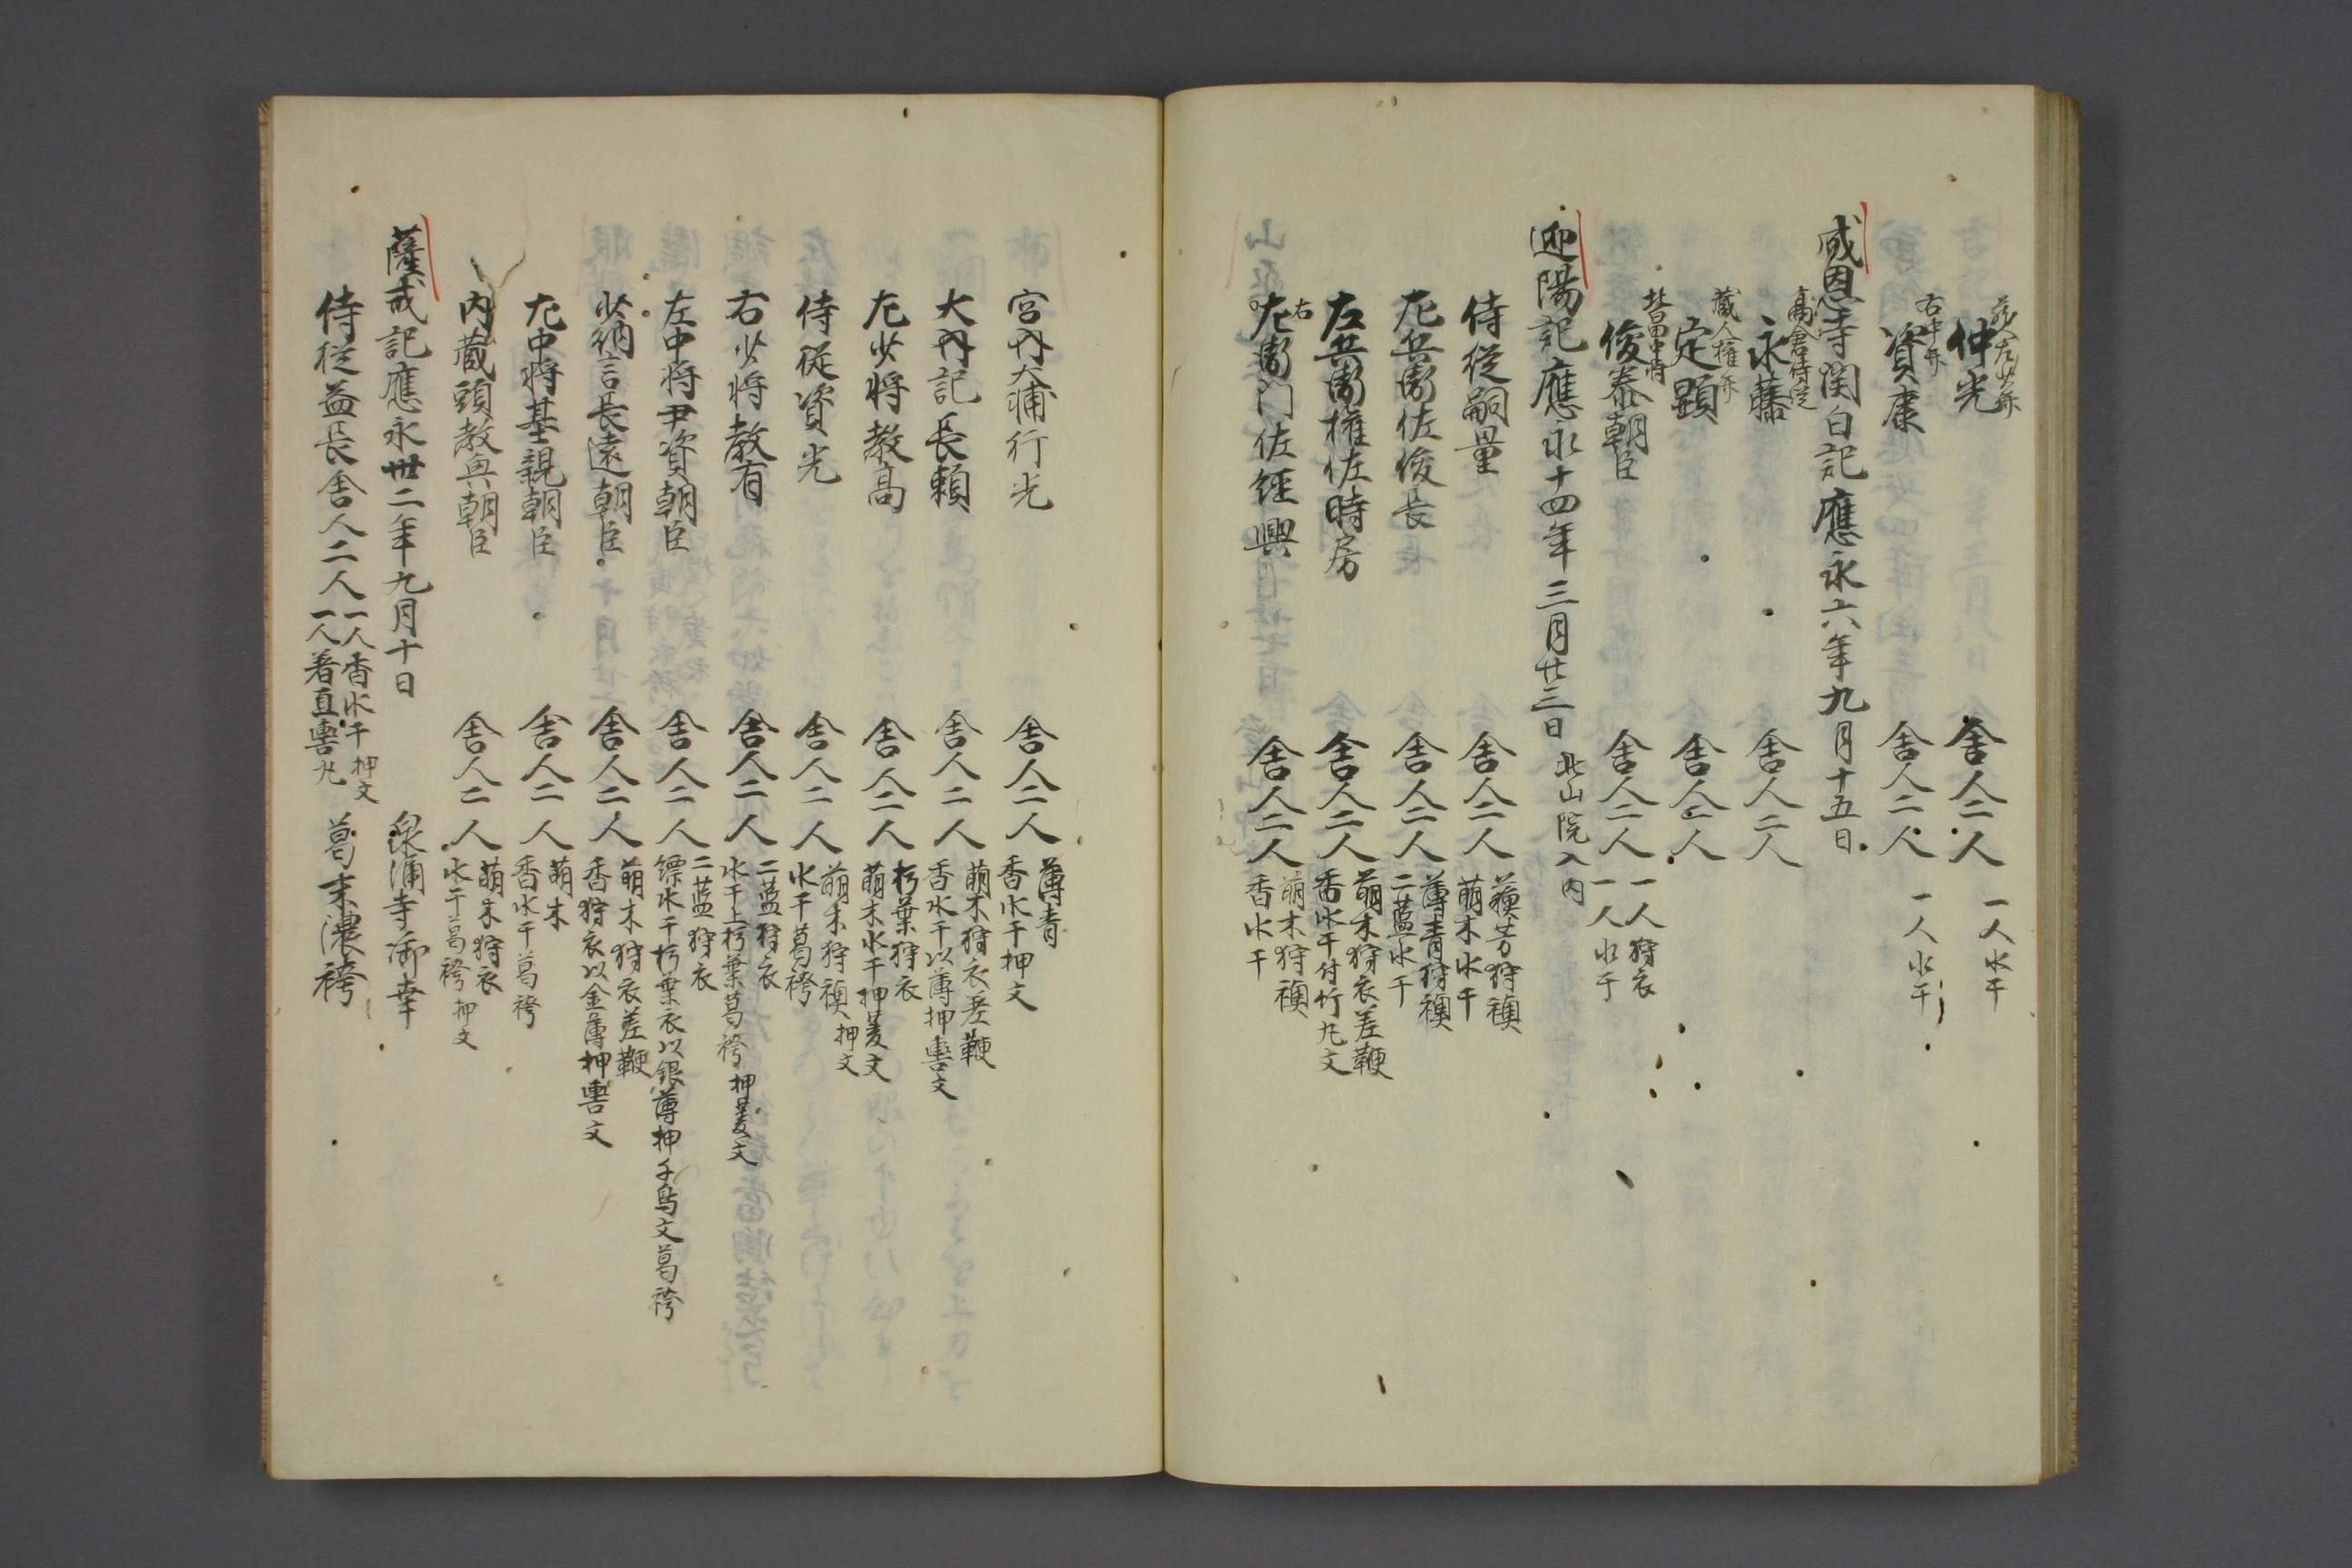 蔵人左少弁
仲光 舎人二人 一人水干
右中弁
資康 舎人二人 一人水干
成恩寺関白記應永六年九月十五日
高倉侍従
永藤 舎人二人
蔵人権弁
定顕 舎人二人
北畠中将
俊泰朝臣 舎人二人 一人狩衣
一人水干
迎陽記應永十四年三月廿三日 北山院入内
侍従嗣量 舎人二人 蘇芳狩襖
萌木水干
左兵衛佐俊長 舎人二人 薄青狩襖
二藍水干
左兵衛権佐時房 舎人二人 萌木狩衣差鞭
香水干付竹丸文
右
左衛門佐経興 舎人二人 萌木狩襖
香水干
宮内大輔行光 舎人二人 薄青
香水干押文
大内記長頼 舎人二人 萌木狩衣差鞭
香水干以薄押轡文
左少将教高 舎人二人 朽葉狩衣
萌木水干押菱文
侍従資光 舎人二人 萌木狩襖押文
水干葛袴
右少将教有 舎人二人 二藍狩衣
水干上朽葉葛袴押菱文
左中将尹資朝臣 舎人二人 二藍狩衣
縹水干朽葉衣以銀薄押千鳥文葛袴
少納言長遠朝臣 舎人二人 萌木狩衣差鞭
香狩衣以金薄押轡文
左中将基親朝臣 舎人二人 萌木
香水干葛袴
内蔵頭教興朝臣 舎人二人 萌木狩衣
水干葛袴押文
薩戒記應永卅二年九月十日 泉涌寺御幸
侍従益長舎人二人 一人香水干押文
一人着直轡丸 葛末濃袴